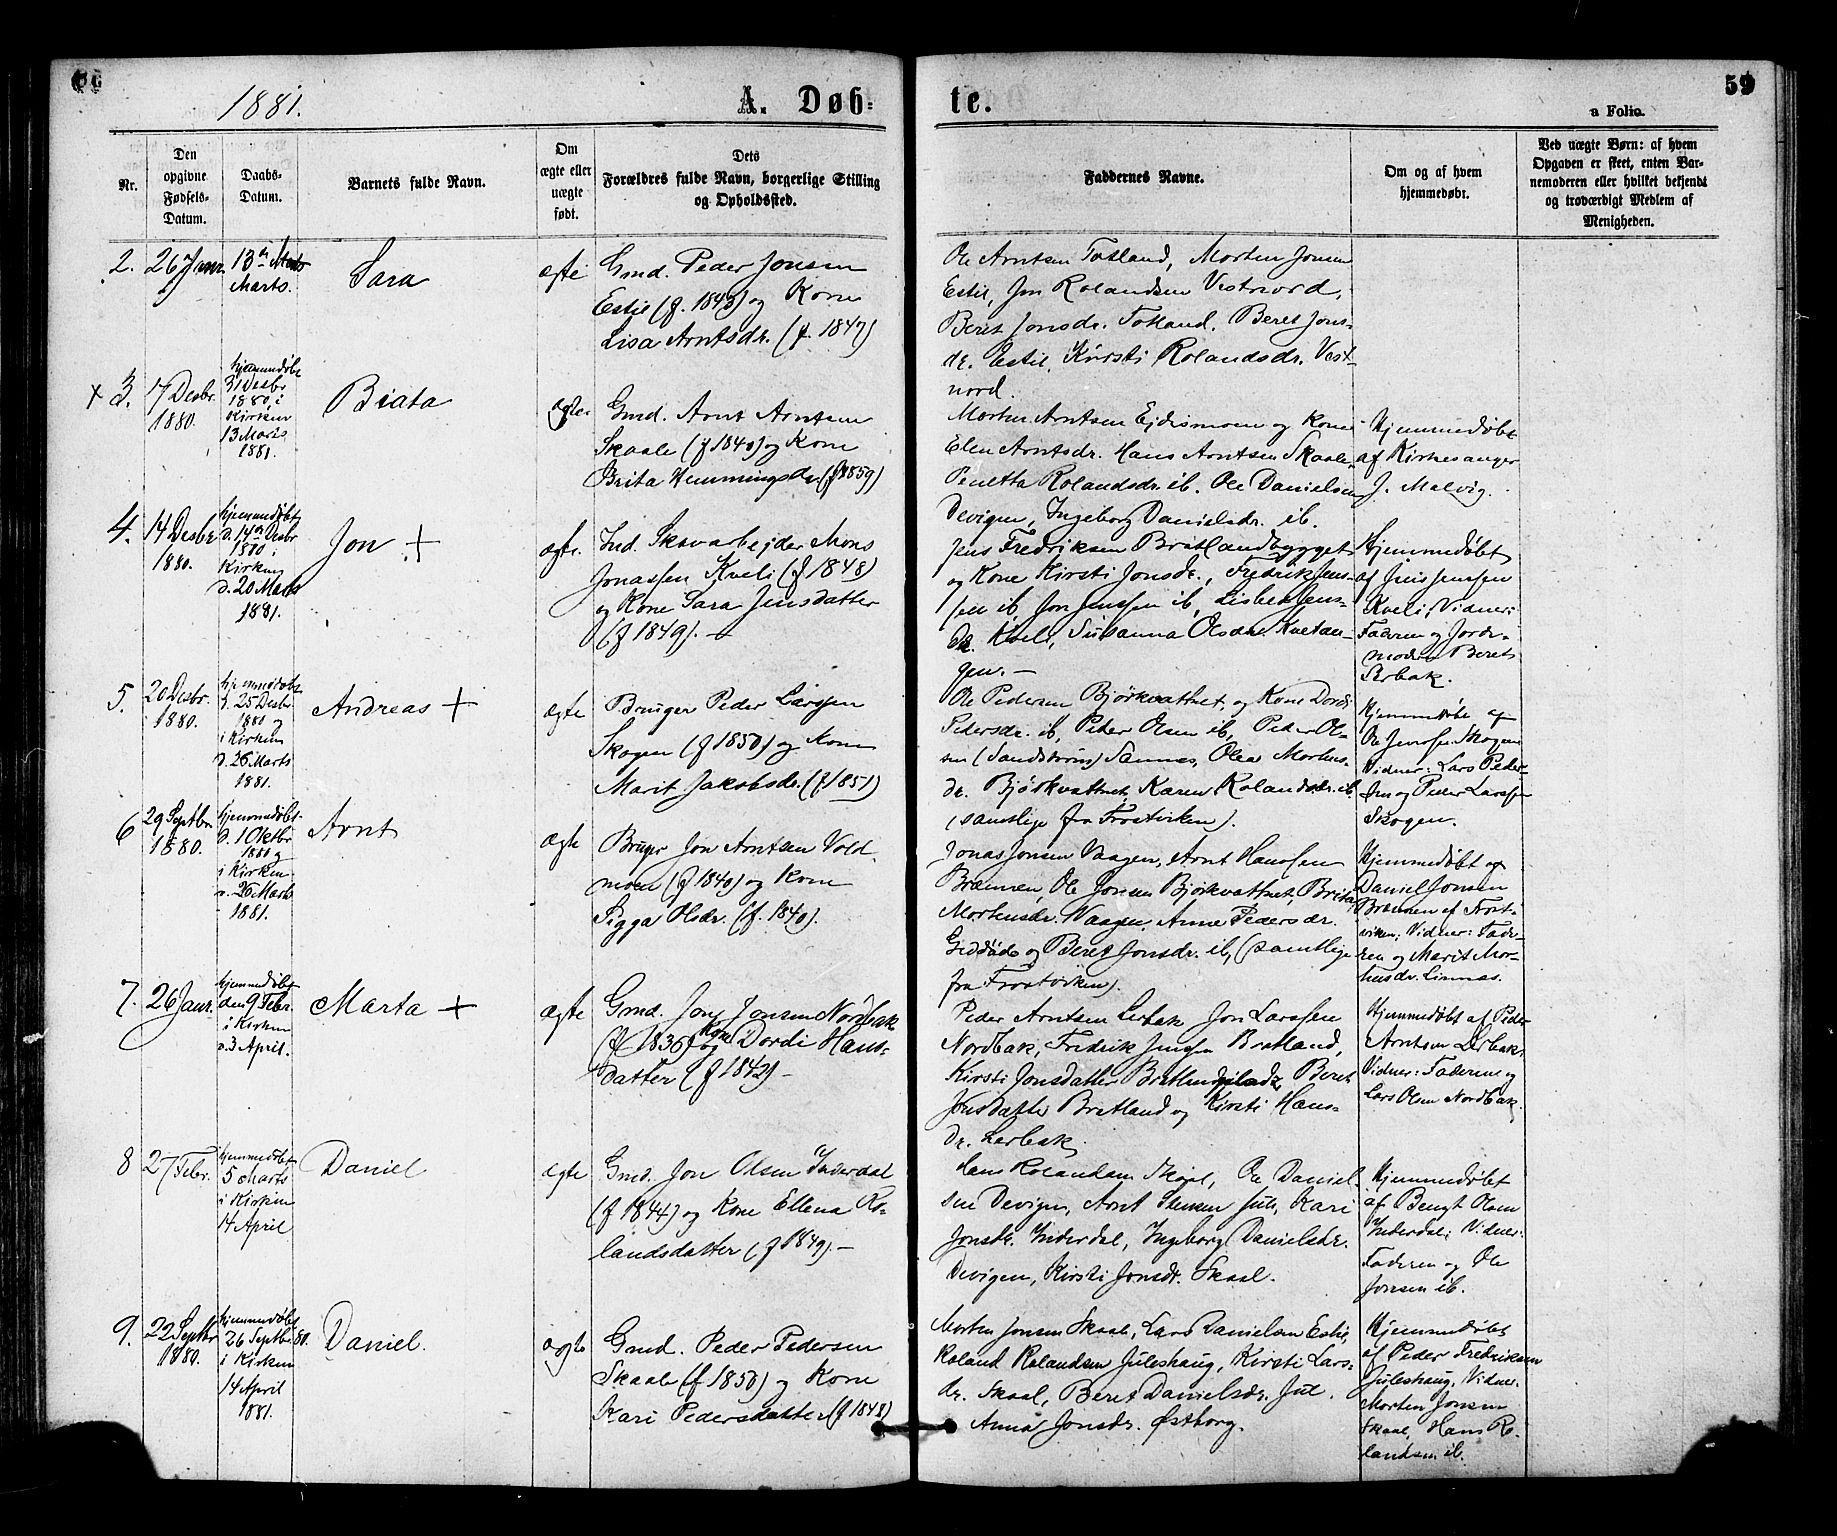 1881.
A. Døb-
te.
59
a Folio.
Nr.
Den
opgivne
Fødsels-
Datum.
Daabs-
Datum.
Barnets fulde Navn.
Om
ægte eller
uægte
født.
Dets
Forældres fulde Navn, borgerlige Stilling
og Opholdssted.
Faddernes Navne.
Om og af hvem
hjemmedøbt.
Ved uægte Børn: af hvem
Opgaven er skeet, enten Bar-
nemoderen eller hvilket bekjendt
og troværdigt Medlem af
Menigheden.
2.
26 Janr.
13de
Marts.
Sara
ægte
Gmd. Peder Jonsen
Estil (f. 1843) og Kone
Lisa Arntsdr. (f. 1847)
Ole Arntsen Totland, Morten Jonsen
Estil, Jon Rolandsen Vestnord,
Beret Jonsdr. Totland, Beret Jons-
dr. Estil, Kirsti Rolandsdr. Vest-
nord.
+ 3.
17 Desbr.
1880.
hjemmedøbt
31 Desbr
1880, i
Kirken
13 Marts
1881.
Biata
ægte
Gmd. Arnt Arntsen
Skaale (f 1840) og Kone
Brita Hemmingsdr. (f 1859)
Morten Arntsen Ejdismoen og Kone
Elen Arntsdr. Hans Arntsen Skaale,
Penetta Rolandsdr. ib. Ole Danielsen
Devigen, Ingeborg Danielsdr. ib.
Hjemmedøbt
af Kirkesanger
J. Malvig.
4.
14 Desbr
1880.
hjemmedøbt
d. 14de Desbr
1880 i
Kirken
d. 20 Marts
1881.
Jon +
ægte
Ind. Skovarbejder Mons
Jonassen Kveli (f 1848)
og Kone Sara Jensdatter
(f 1849). -
Jens Fredriksen Bratlandbygget
og Kone Kirsti Jonsdr., Fredrik Jens-
sen ib, Jon Jenssen ib, Lisbet Jens-
dr. Kveli, Susanna Olsdr. Kvetan-
gen. -
Hjemmedøbt
af Jens Jenssen
Kveli, Vidner:
Faderen og Jorde-
moder Beret
Lerbak.
5.
20 Desbr.
1880.
hjemmedøbt
d. 25 Desbr
1880 og
i Kirken
d. 26 Marts
1881.
Andreas +
ægte
Bruger Peder Larssen
Skogen (f 1850) og Kone
Marit Jakobsdr. (f 1851)
Ole Pedersen Bjørkvattnet og Kone Dordi
Pedersdr. ib, Peter Olsen ib, Peder Ol-
sen (Sandstrøm) Sannes, Olea Mortens-
dr. Bjørkvattnet, Karen Rolandsdr. ib.
(samtlige fra Frostviken).
Hjemmedøbt af
Ole Jenssen Skogen
Vidner: Lars Peder-
sen og Peder Larssen
Skogen.
6
29 Septbr.
1880.
hjemmedøbt
d. 1 Oktbr
1880 og
i Kirken
d. 26 Marts
1881.
Arnt
ægte
Bruger Jon Arntsen Vold-
moen (f 1840) og Kone
Sigga Olsdr. (f. 1840).
Jonas Jonsen Vaagen, Arnt Hanssen
Brannen, Ole Jonsen Bjørkvattnet, Brita
Mortensdr. Vaagen, Anne Pedersdr.
og Beret Jonsdr. ib, (samtlige
fra Frostviken).
Hjemmedøbt af
Daniel Jonsen
Brannen af Frost-
viken; Vidner: Fade-
ren og Marit Mor-
tensdr. Linnæs.
7.
26 Janr.
hjemmedøbt
den 9 Febr
i Kirken
d. 3 April.
Marta +
ægte
Gmd. Jon Jonsen Nordbak
(f 1836) og Kone Dordi Hans-
datter (f 1842) -
Peder Arntsen Lerbak, Jon Larssen
Nordbak, Fredrik Jenssen Bratland,
Kirsti Jonsdatter, Beret
Jonsdatter Bratland og Kirsti Hans-
dr. Lerbak.
Hjemmedøbt af Peder
Arntsen Lerbak.
Vidner: Faderen og
Lars Olsen Nordbak.
8
27 Febr.
hjemmedøbt
5 Marts
i Kirken
14 April
Daniel
ægte
Gmd. Jon Olsen Inderdal
(f 1844) og Kone Ellena Ro-
landsdatter (f 1849). -
Hans Rolandsen Skaal, Ole Daniel-
sen Devigen, Arnt Stensen Jule, Kari
Jonsdr. Inderdal, Ingeborg Danielsdr.
Devigen, Kirsti Jonsdr. Skaal.
Hjemmedøbt
af Bengt Olsen
Inderdal; Vidner:
Faderen og Ole
Jonsen ib.
9.
22 Septbr
1880.
hjemmedøbt
26 Septbr 80.
i Kirken
14 April
1881.
Daniel.
ægte
Gmd. Peder Pedersen
Skaale (f 1850) og Kone
Kari Pedersdatter (f 1848)
Morten Jonsen Skaale, Lars Danielsen Estil,
Roland Rolandsen Juleshaug, Kirsti Lars-
dr. Skaal, Beret Danielsdr. Jul.
Anna Jonsdr. Østborg.
Hjemmedøbt
af Peder Fredriksen
Juleshaug, Vidner:
Morten Jonsen
Skaal, Hans Ro-
landsen ib.